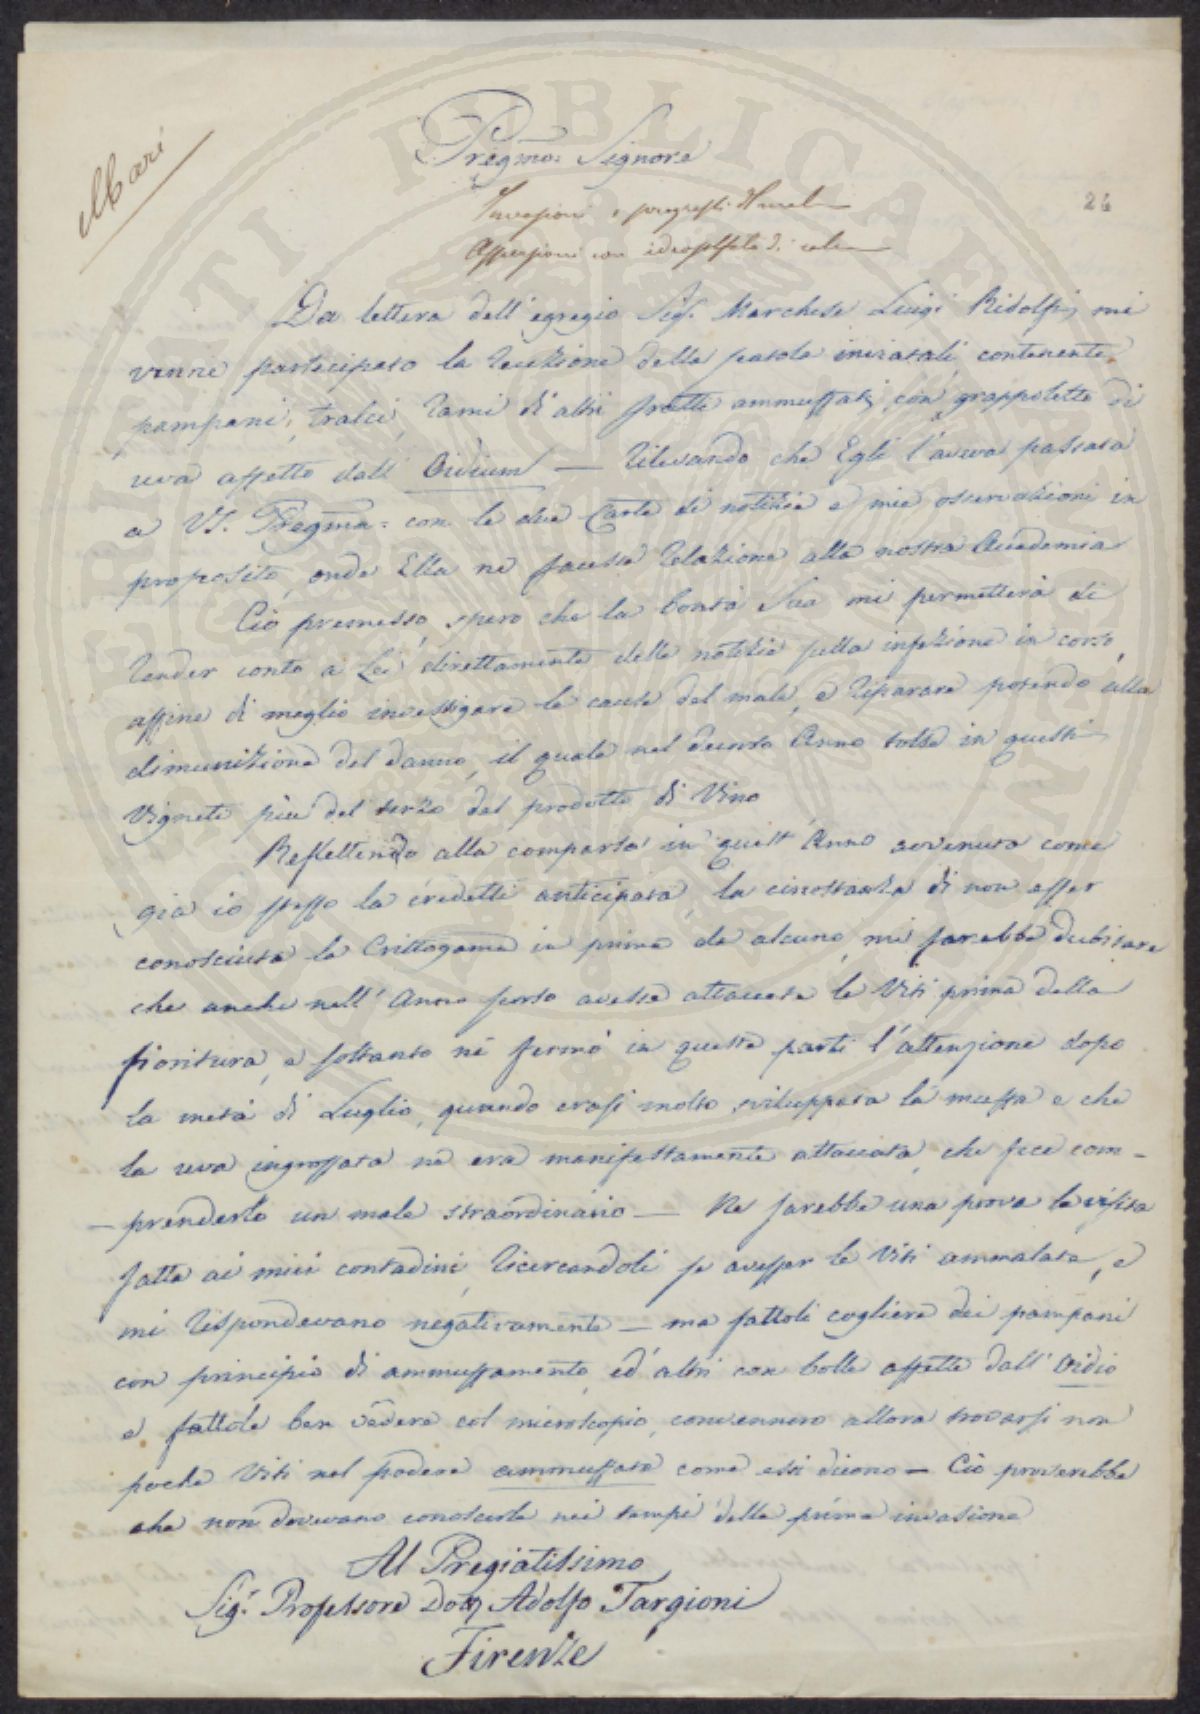 Mari
26
Pregmo: Signore
Invasioni e progressi
Aspersioni con idrosolfato di calce
Da lettera dell'egregio Sigr. Marchese Luigi Ridolfi, mi
venne partecipato la recezione della scatola inviatali contenente
pampani, tralci, rami di altri frutti ammuffati con grappoletto di
uva affetto dall' Oidium — Rilevando che Egli l'aveva passata
a VS. Pregma: con le due Carte di notizie e mie osservazioni in
proposito, onde Ella ne facesse relazione alla nostra Accademia
Ciò premesso, spero che la bontà Sua mi permetterà di
render conto a Lei direttamente delle notizie sulla infezione in corso,
affine di meglio investigare le cause del male, e riparare potendo alla
dimunizione del danno, il quale nel decorso Anno tolse in questi
Vigneti più del terzo del prodotto di Vino
Reflettendo alla comparsa in quest'Anno avvenuta come
già io stesso la credetti anticipata, la circostanza di non esser
conosciuta la Crittogama in prima da alcuno, mi farebbe dubitare
che anche nell'Anno scorso avesse attaccate le Viti prima della
fioritura, e soltanto ne fermò in queste parti l'attenzione dopo
la metà di Luglio, quando erasi molto sviluppata la muffa e che
la uva ingrossata ne era manifestamente attaccata, che fece com-
-prenderlo un male straordinario — Ne sarebbe una prova la visita
fatta ai miei contadini, ricercandoli se avesser le Viti ammalate, e
mi rispondevano negativamente — ma fattoli cogliere dei pampani
con principio di ammuffamento, ed altri con bolle affette dall' Oidio
e fattole ben vedere col microscopio, convennero allora trovarsi non
poche Viti nel podere ammuffate come essi dicono — Ciò proverebbe
che non dovevano conoscerla nei tempi della prima invasione
Al Pregiatissimo
Sigr. Professore Dottr Adolfo Targioni
Firenze